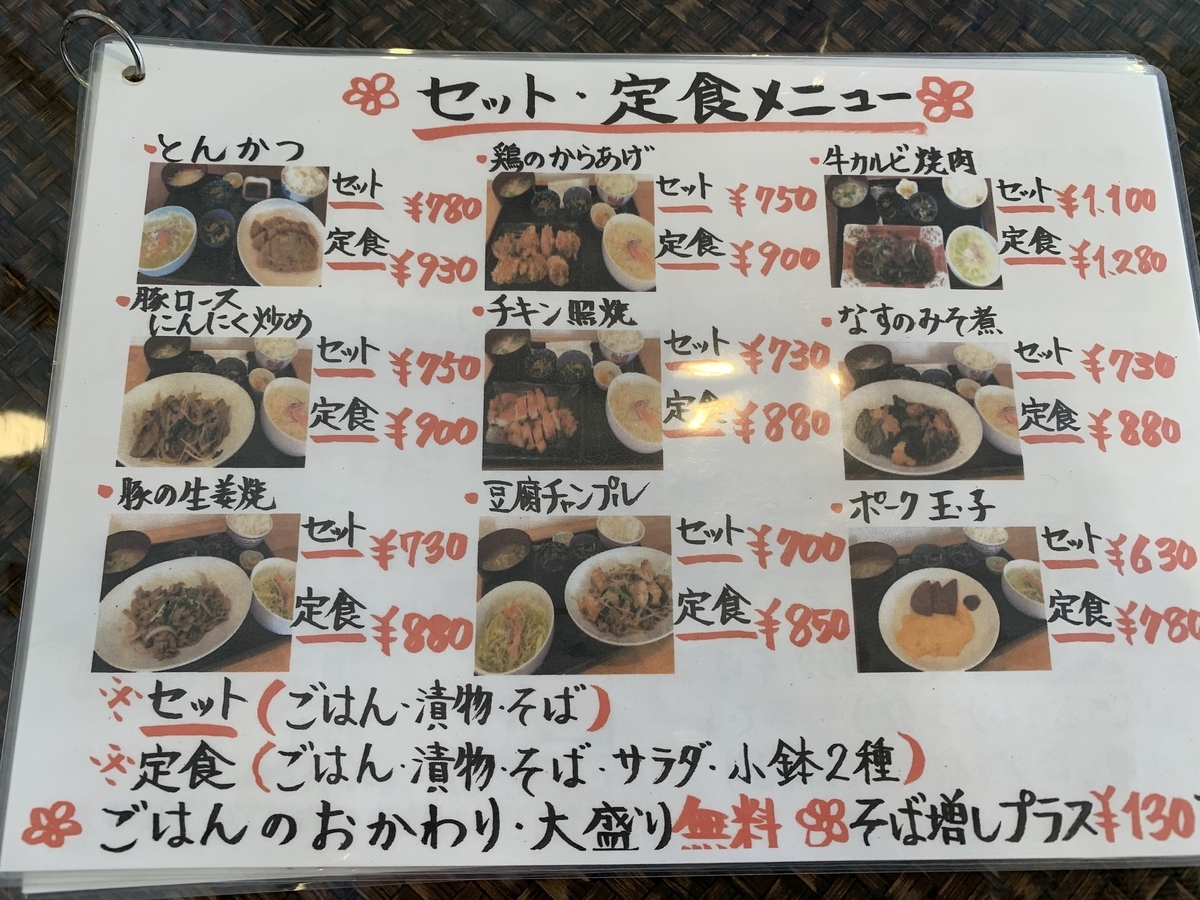 セット・定食メニュー
・とんかつ
セット ¥780
定食 ¥930
・鶏のからあげ
セット ¥750
定食 ¥900
・牛カルビ焼肉
セット ¥1,100
定食 ¥1,280
・豚ロース
にんにく炒め
セット ¥750
定食 ¥900
・チキン照焼
セット ¥730
定食 ¥880
・なすのみそ煮
セット ¥730
定食 ¥880
・豚の生姜焼
セット ¥730
定食 ¥880
・豆腐チャンプル
セット ¥700
定食 ¥850
・ポーク玉子
セット ¥630
定食 ¥780
※セット(ごはん・漬物・そば)
※定食(ごはん・漬物・そば・サラダ・小鉢2種)
ごはんのおかわり・大盛り無料 そば増しプラス¥130